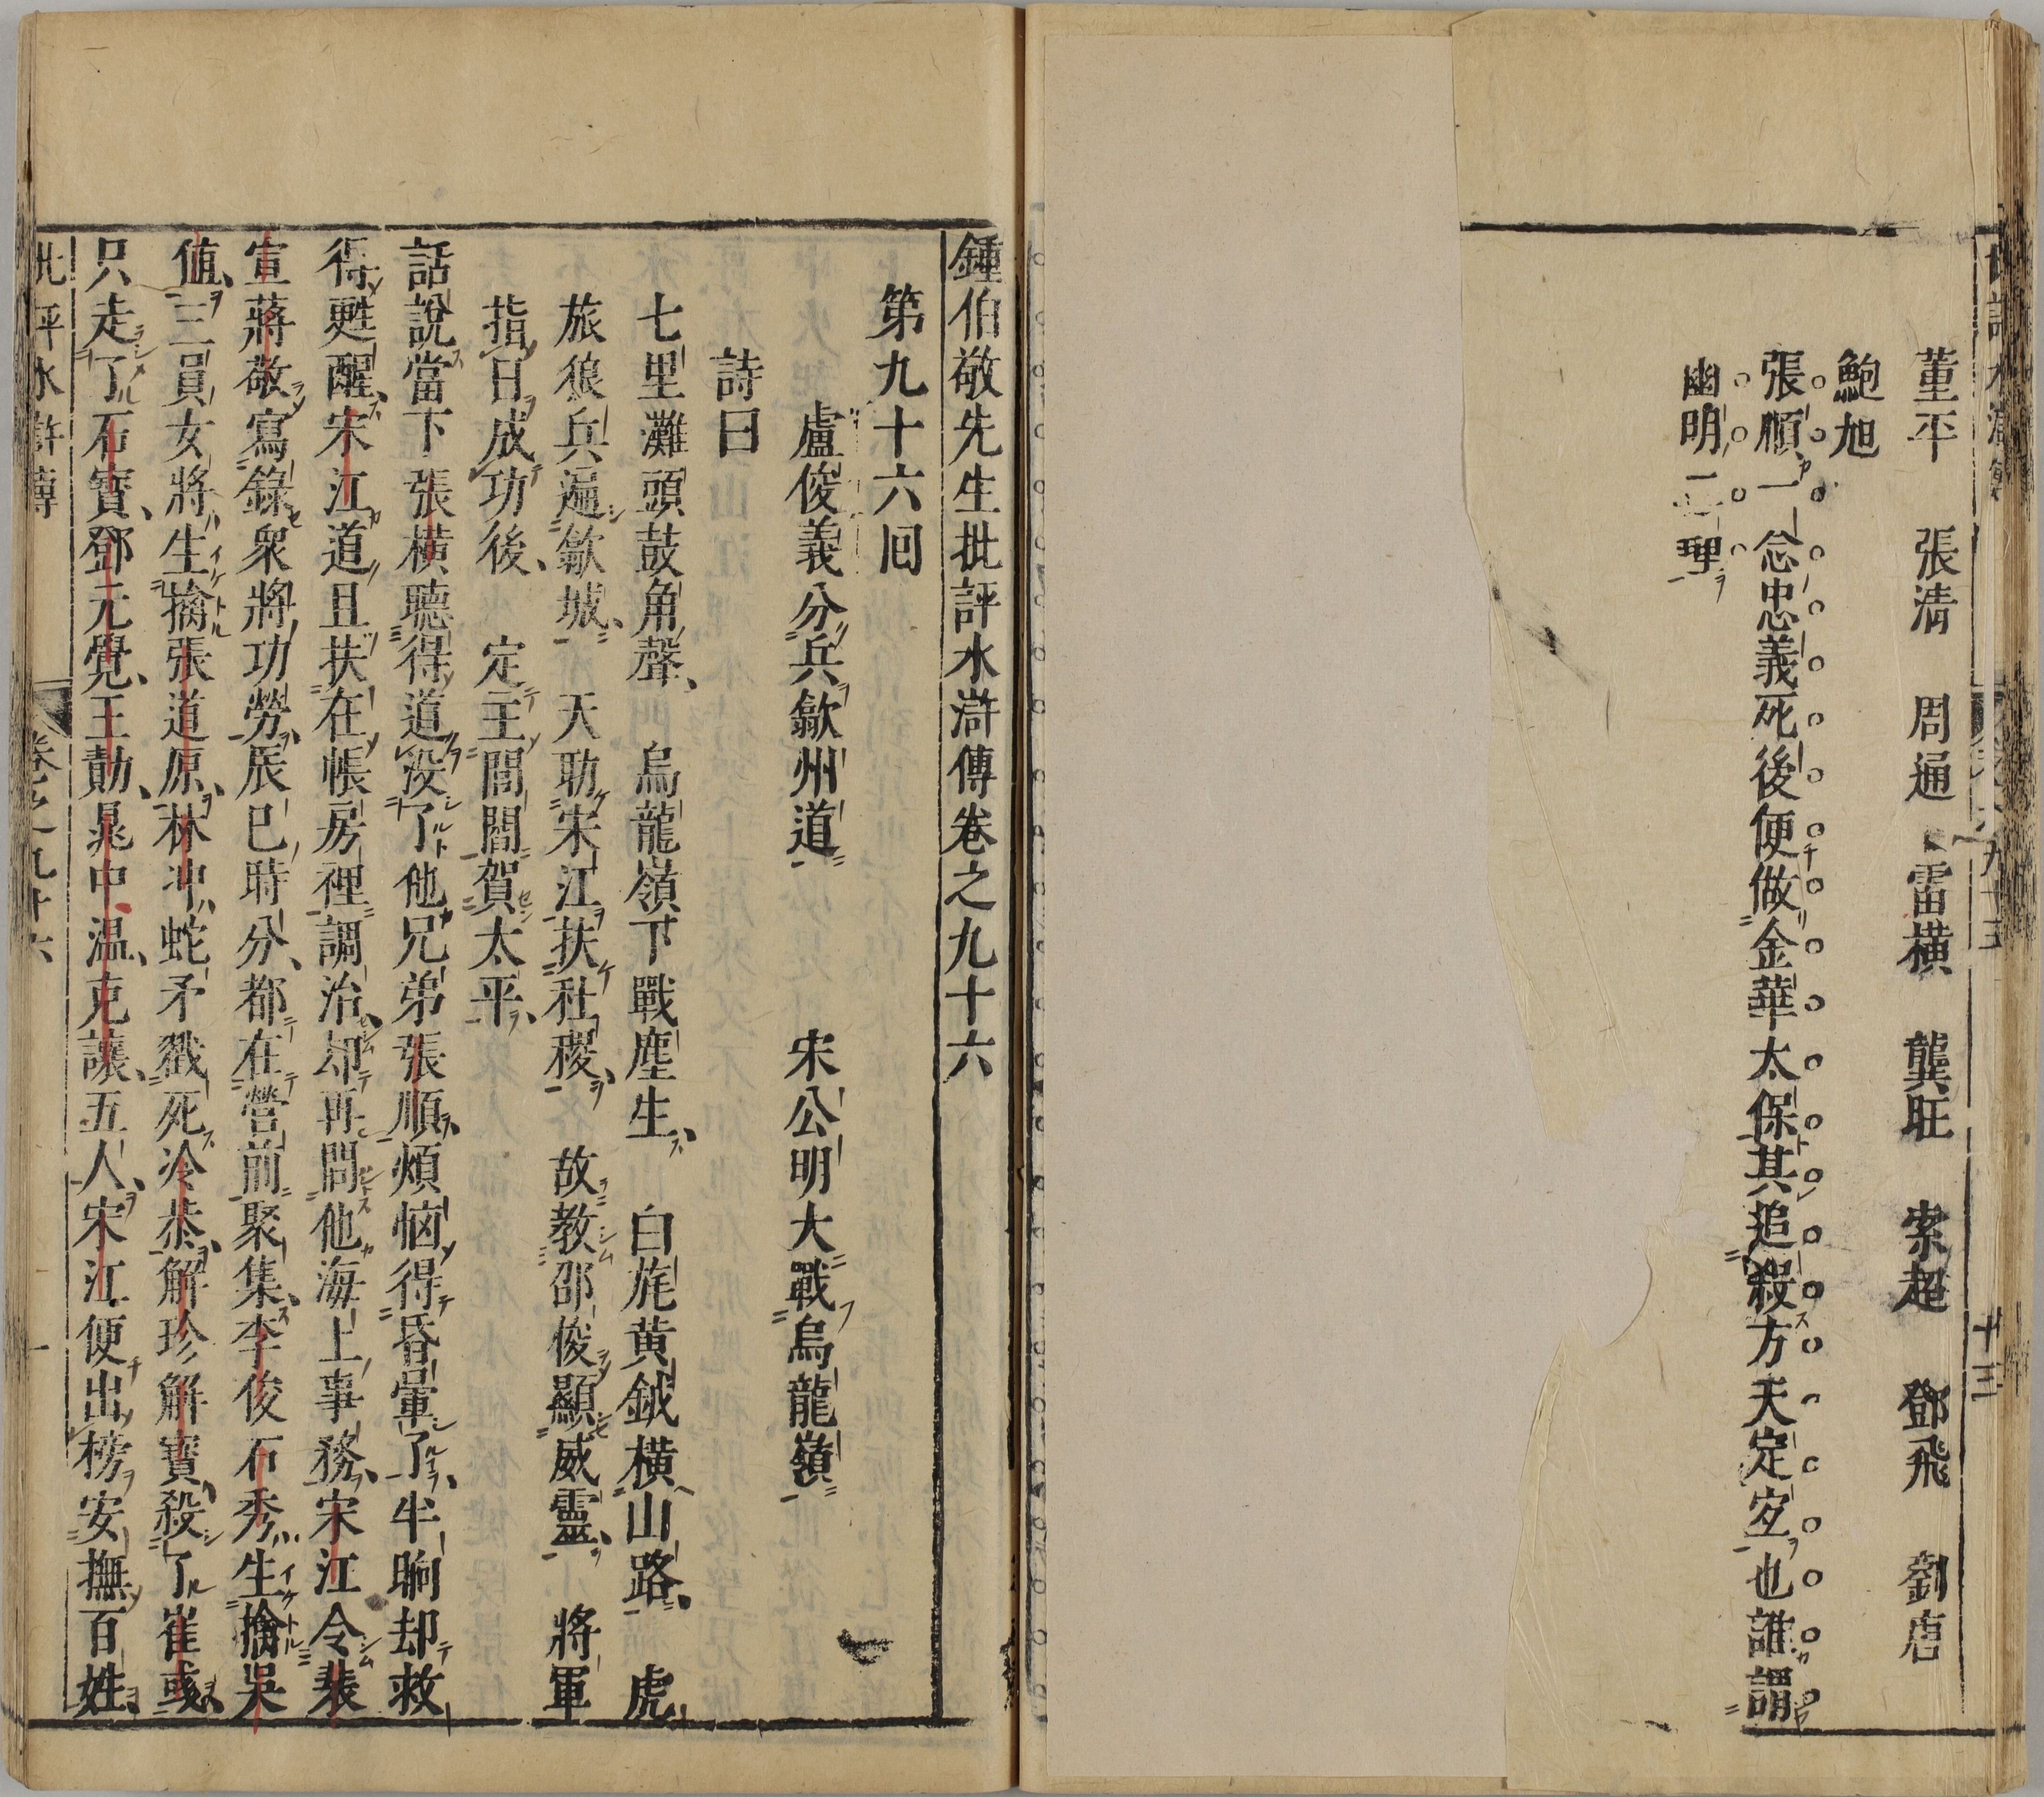 董平　張清　周通　雷横　龔旺　索超　鄧飛　劉唐
鮑旭
張順一念忠義死後便做金華太保其追殺方天定宐也誰謂
幽明二理
十三
鍾伯敬先生批評水滸傳卷之九十六
第九十六回
盧俊義分兵歙州道　宋公明大戰烏龍嶺
詩曰
七里灘頭鼓角聲、烏龍嶺下戰塵生、白旄黄鉞横山路、虎
旅狼兵遍歙城、天助宋江扶社稷、故教邵俊顯威靈、將軍
指日成功後、定王閶闔賀太平、
話說當下張橫聽得道没了他兄弟張順、煩惱得昏暈了、半晌却救
得甦醒、宋江道且扶在帳房裡調治、却再問他海上事務、宋江令裴
宣蔣敬寫錄衆將功勞、辰巳時分、都在營前聚集、李俊石秀生擒吳
值、三員女將生擒張道原、林冲、蛇矛戳死冷恭、解珍解寶、殺了崔彧、
只走了石寶、鄧元覺、王勣、晁中、温、克讓、五人、宋江便出榜安撫百姓、
批評水滸傳　卷之九十六　一